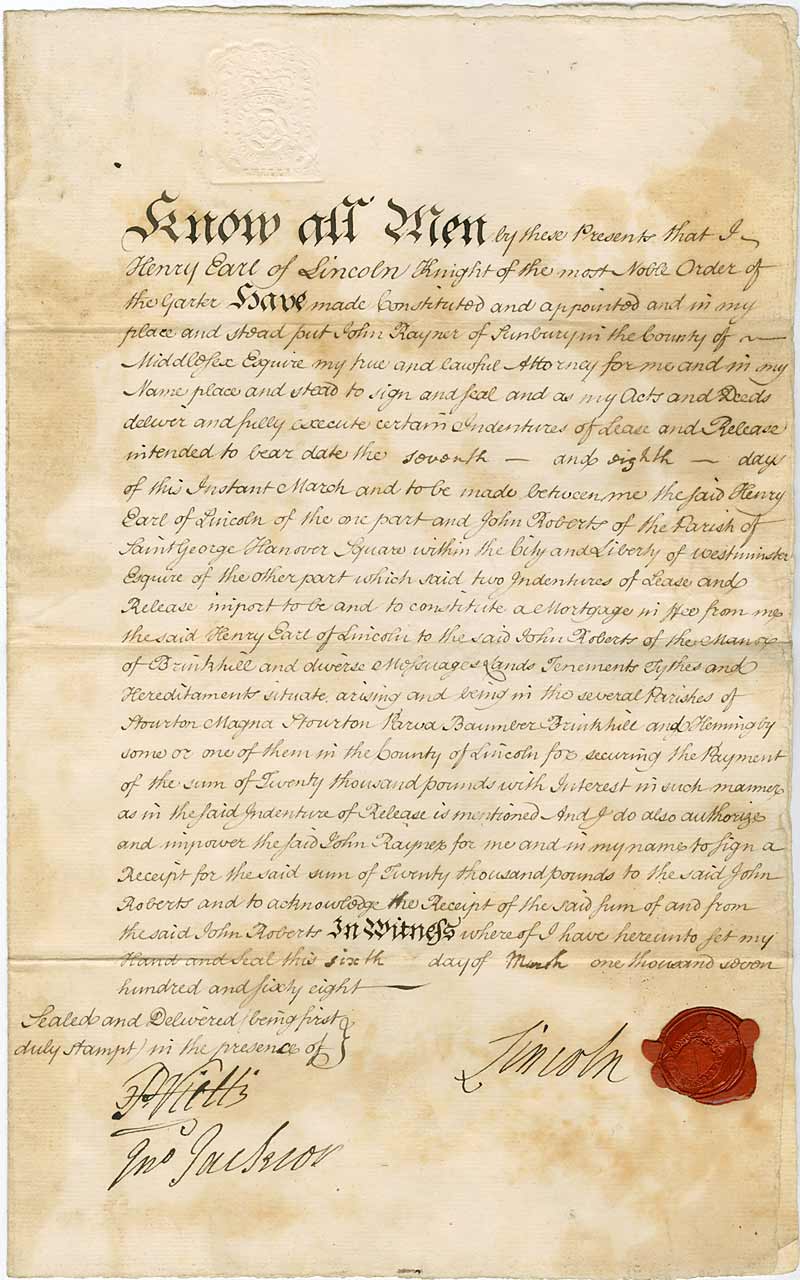 Know all Men by these Presents that I
Henry Earl of Lincoln Knight of the most Noble Order of
the Garter Have made Constituted and appointed and in my
place and stead put John Rayner of Sunbury in the County of
Middlesex Esquire my true and lawful Attorney for me and in my
Name place and stead to sign and seal and as my Acts and Deeds
deliver and fully execute certain Indentures of Lease and Release
intended to bear date the seventh — and eighth — day
of this Instant March and to be made between me the said Henry
Earl of Lincoln of the one part and John Roberts of the Parish of
Saint George Hanover Square within the City and Liberty of Westminster
Esquire of the other part which said two Indentures of Lease and
Release import to be and to constitute a Mortgage in ffee from me
the said Henry Earl of Lincoln to the said John Roberts of the Manor
of Brinkhill and diverse Messuages Lands Tenements Tythes and
Hereditaments situate arising and being in the several Parishes of
Stourton Magna Stourton Parva Baumber Brinkhill and Hemingby
some or one of them in the County of Lincoln for securing the Payment
of the sum of Twenty thousand pounds with Interest in such manner
as in the said Indenture of Release is mentioned And I do also authorize
and impower the said John Rayner for me and in my name to sign a
Receipt for the said sum of Twenty thousand pounds to the said John
Roberts and to acknowledge the Receipt of the said sum of and from
the said John Roberts In Witness whereof I have hereunto set my
Hand and Seal this sixth day of March one thousand seven
hundred and sixty eight —
Sealed and Delivered (being first
duly stampt) in the presence of
Lincoln
Jno Jackson